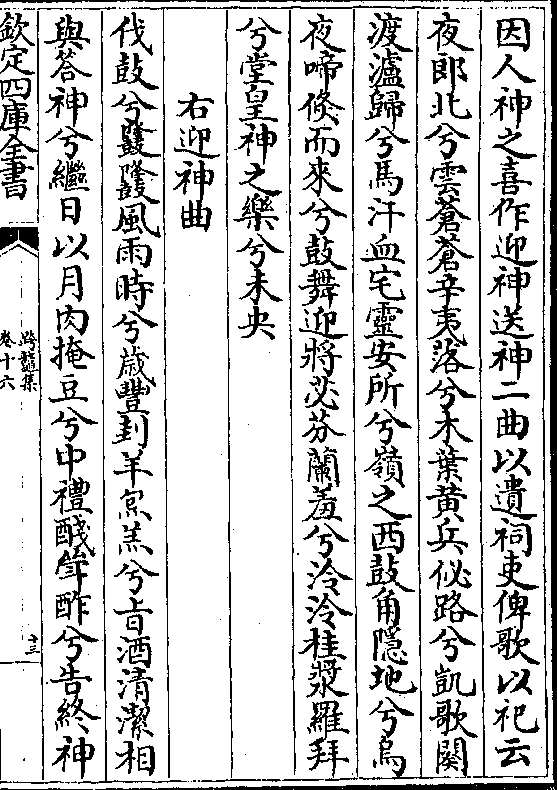 因人神之喜作迎神送神二曲以遺祠吏俾歌以祀云
夜郎北兮雲蒼蒼辛夷落兮木葉黄兵佖路兮凱歌闋
渡瀘歸兮馬汗血宅靈安所兮嶺之西鼓角隱地兮烏
夜啼倐而來兮鼓舞迎將苾芬蘭羞兮泠泠桂漿羅拜
兮堂皇神之樂兮未央
右迎神曲
伐鼓兮鼟鼟風雨時兮歳豐刲羊炰羔兮旨酒清潔相
與答神兮繼日以月肉掩豆兮中禮醆斝酢兮告終神
欽定四庫全書
跨鼇集
卷十六
十三